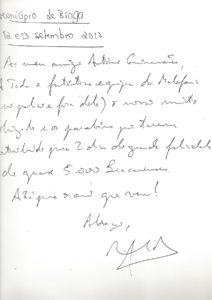 Município de Braga
12 e 13 setembro 2017
Ao meu amigo António Guimarães,
Toda a fantástica equipa da
no palco e fora dele) o nosso muito
obrigado e os parabéns por terem
contribuído para 2 dias de grande felicidade
de quase 5.000
Até para o ano que vem!
Abraço,